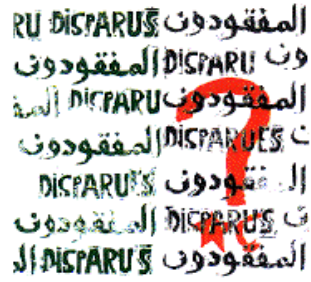 RU DISPARUS المفقودون
المفقودون DISPARU ون
المف DISPARU المفقودون
المفقودون DISPARUES
DISPARU'S المفقودون
المفقودون DISPARUS
ال DISPARUS المفقودون
?